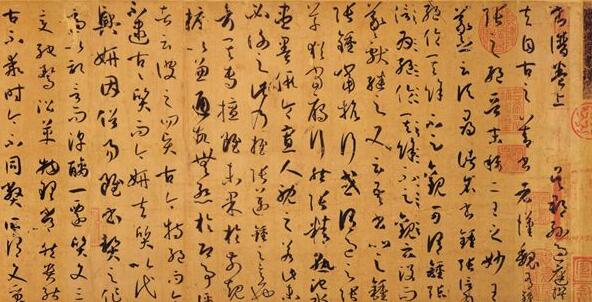 書譜卷上 吳郡孫過庭撰
夫自古之善書者漢魏有鍾
張之絕晉末稱二王之妙王
羲之云頃尋諸名書鍾張信為
絕倫其餘不足觀可謂鍾張
云沒而
羲獻繼之又云吾書比之
鍾張鍾當抗行或謂過之張
草猶當鴈行然張精熟池水
盡墨假令寡人耽之若此未
必謝之此乃推張邁鍾之意
也考其專擅雖未果於前規
摭以兼通故無慚於即事
評者云彼之四賢古今特絕而今
不逮古古質而今妍夫質以代
興妍因俗易雖書契之作
適以記言而淳醨一遷質文三
變馳騖沿革物理常然貴能
古不乖時今不同弊所謂文質